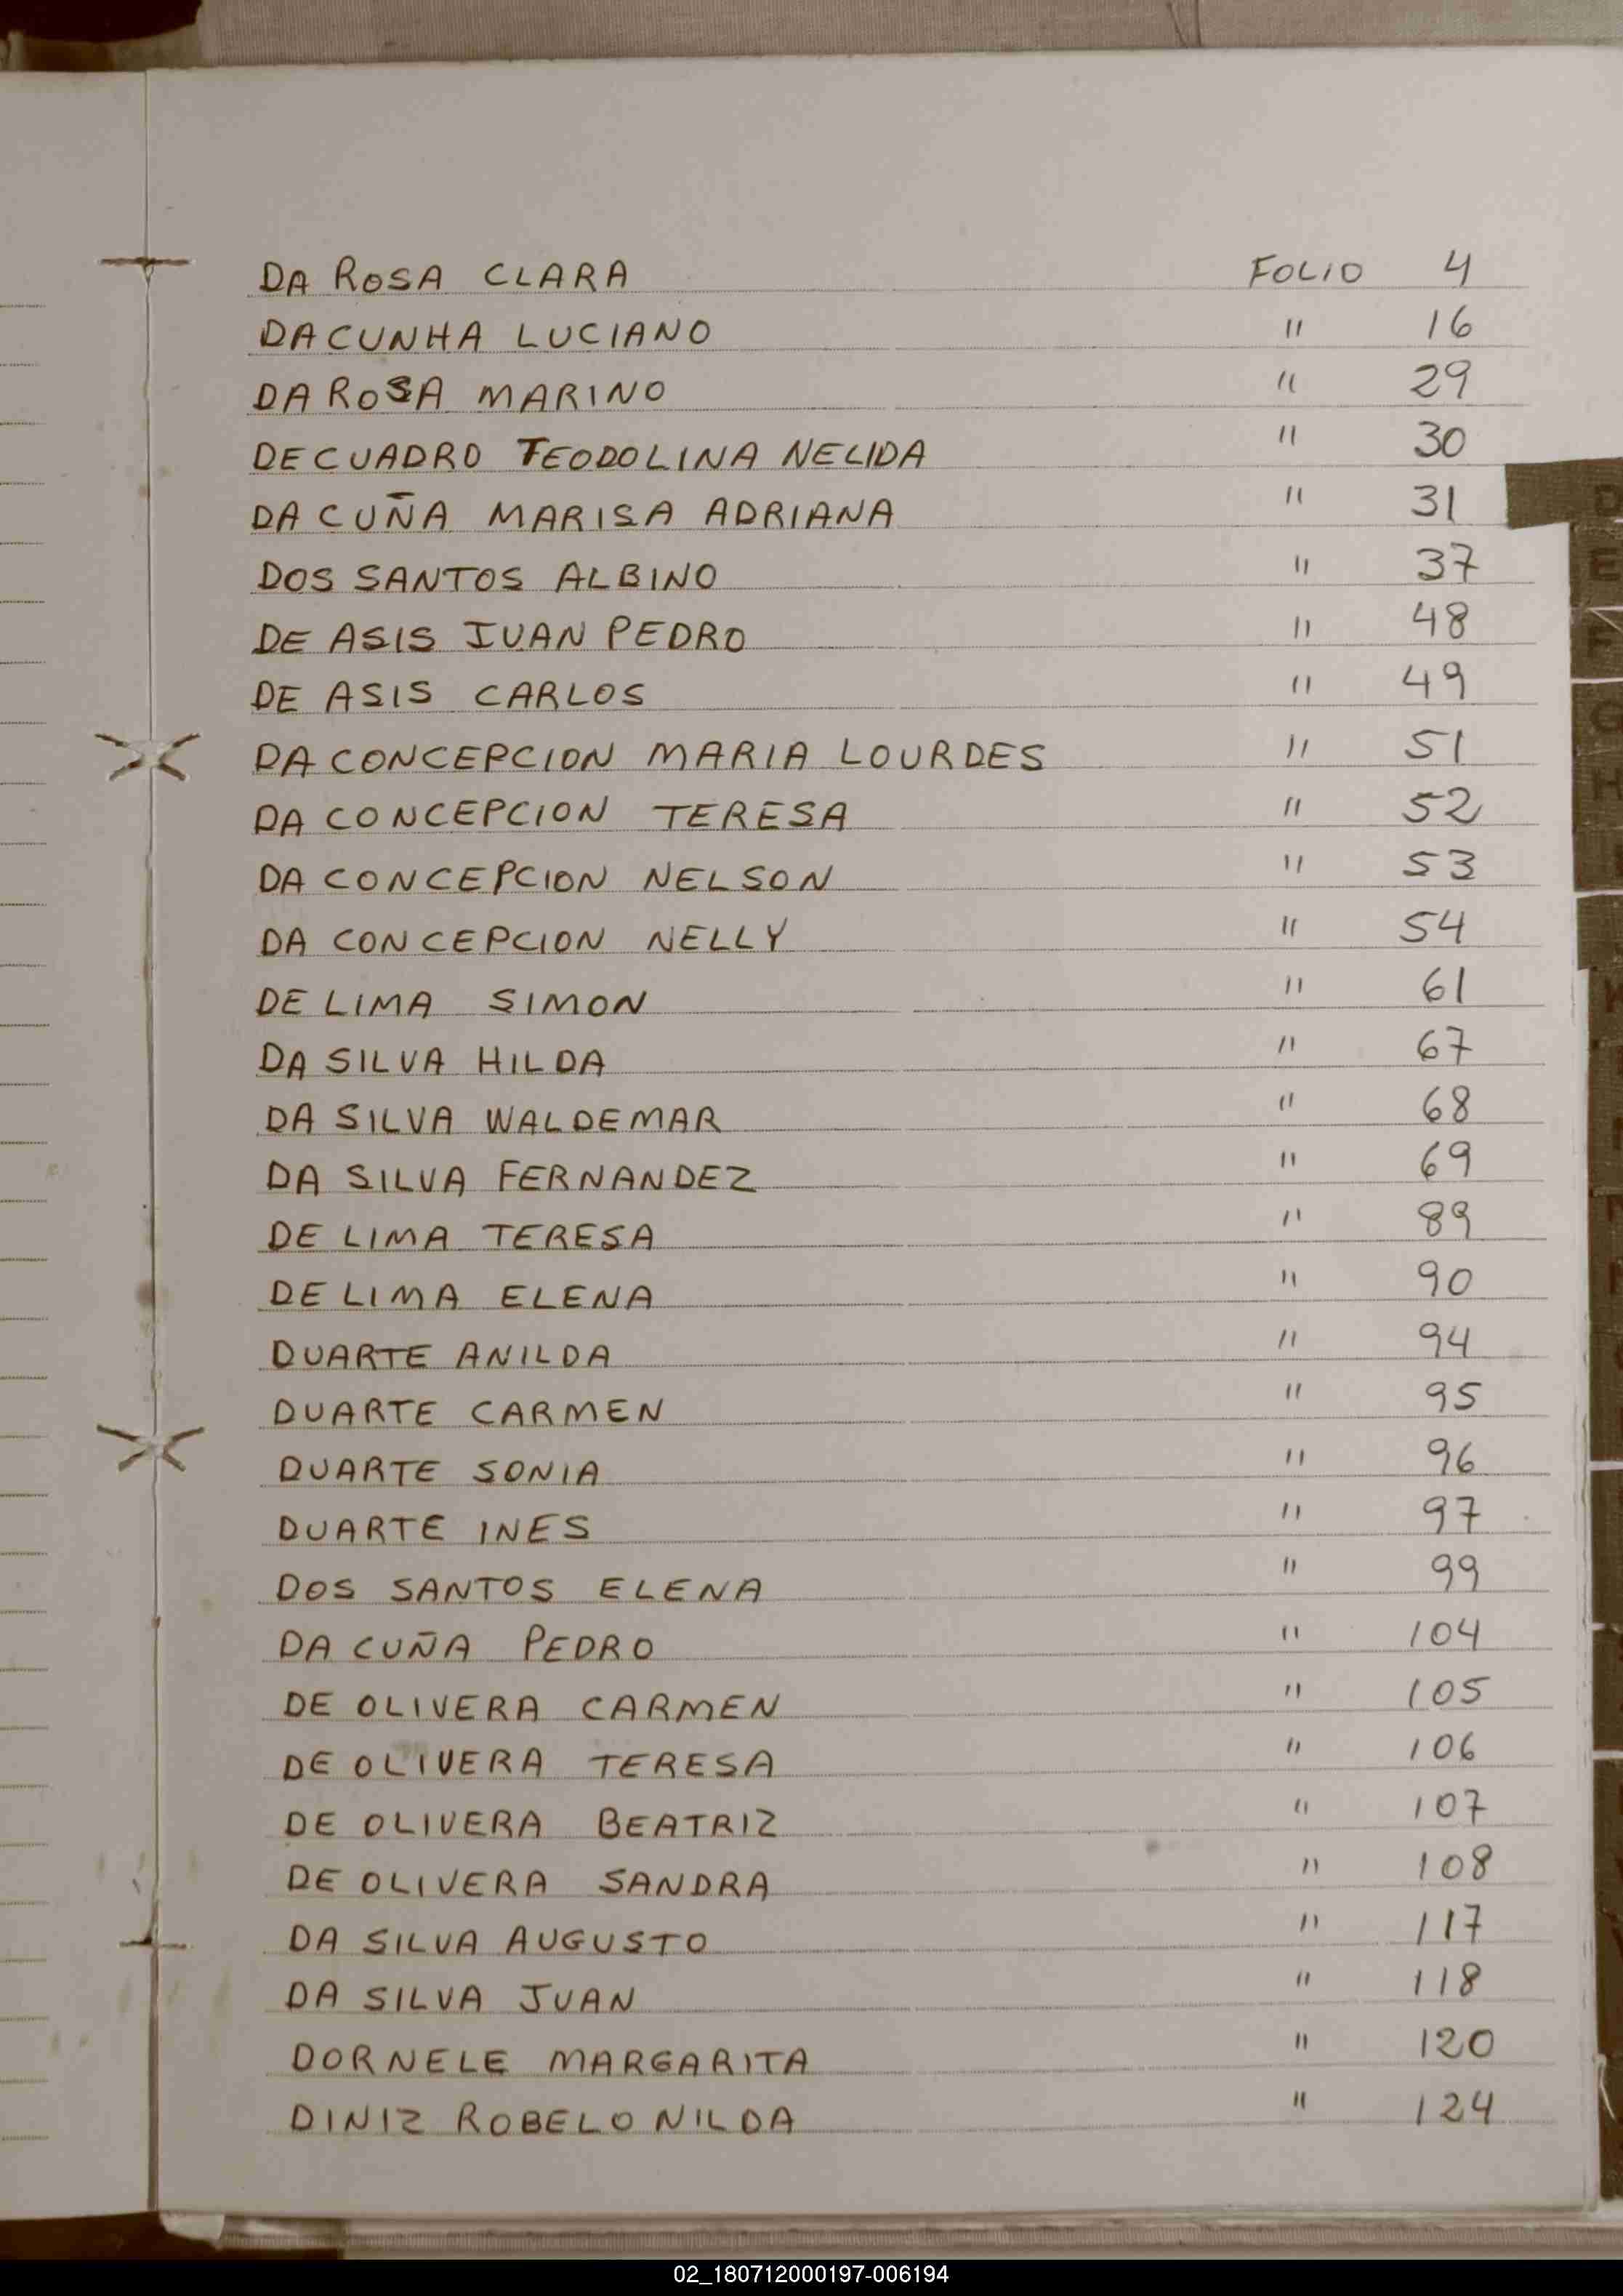 DA ROSA CLARA FOLIO 4
DA CUNHA LUCIANO " 16
DA ROSA MARINO " 29
DE CUADRO TEODOLINA NELIDA " 30
DA CUÑA MARISA ADRIANA " 31
DOS SANTOS ALBINO " 37
DE ASIS JUAN PEDRO " 48
DE ASIS CARLOS " 49
DA CONCEPCION MARIA LOURDES " 51
DA CONCEPCION TERESA " 52
DA CONCEPCION NELSON " 53
DA CONCEPCION NELLY " 54
DE LIMA SIMON " 61
DA SILVA HILDA " 67
DA SILVA WALDEMAR " 68
DA SILVA FERNANDEZ " 69
DE LIMA TERESA " 89
DE LIMA ELENA " 90
DUARTE ANILDA " 94
DUARTE CARMEN " 95
DUARTE SONIA " 96
DUARTE INES " 97
DOS SANTOS ELENA " 99
DA CUÑA PEDRO " 104
DE OLIVERA CARMEN " 105
DE OLIVERA TERESA " 106
DE OLIVERA BEATRIZ " 107
DE OLIVERA SANDRA " 108
DA SILVA AUGUSTO " 117
DA SILVA JUAN " 118
DORNELE MARGARITA " 120
DINIZ ROBELO NILDA " 124
02_180712000197-006194